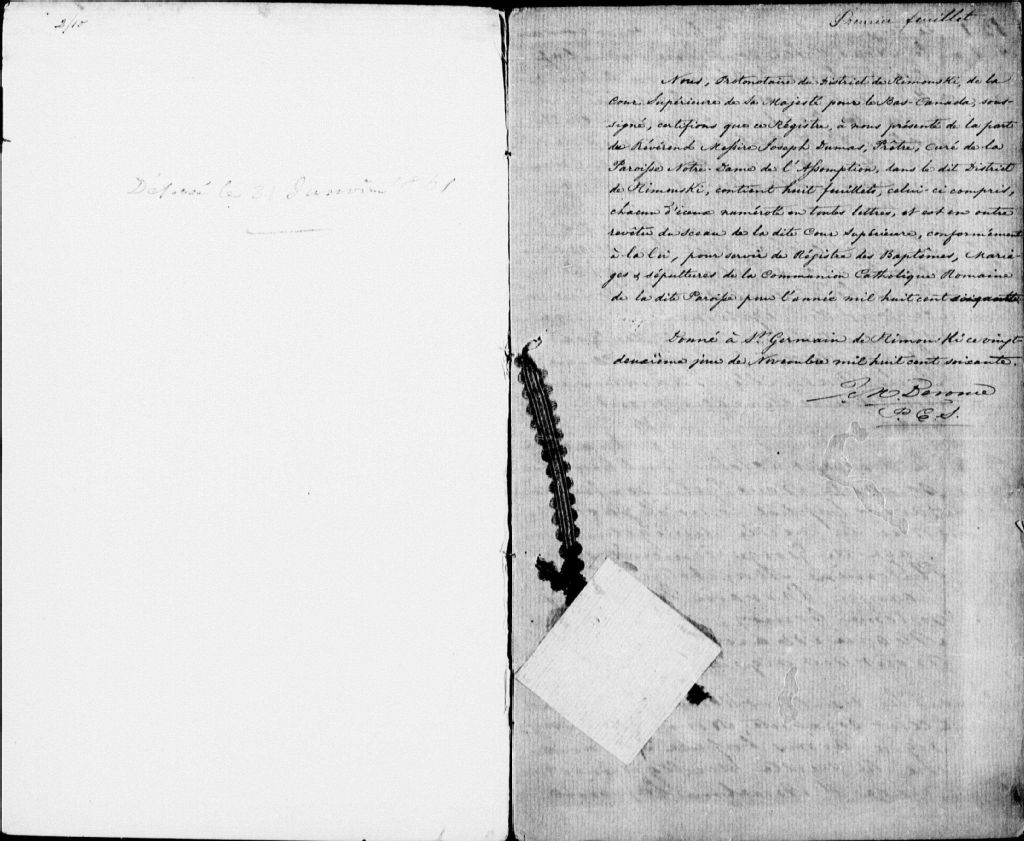 2/10
Déposé le 31 Janvier
Premier feuillet
Nous, Protonotaire du District de Rimouski, de la
Cour Supérieure de Sa Majesté pour le Bas-Canada, sous-
signé, certifions que ce Régistre, à nous présenté de la part
du Révérend Messire Joseph Dumas, Prêtre, Curé de la
Paroisse Notre-Dame de l'Assomption, dans le dit District
de Rimouski, contient huit feuillets, celui-ci compris,
chacun d'iceux numéroté en toutes lettres, et est en outre
revêtu du sceau de la dite Cour Supérieure, conformément
à la loi, pour servir de Régistre des Baptêmes, Maria-
ges & sépultures de la Communion Catholique Romaine
de la dite Paroisse pour l'année mil huit cent soixante
Donné à St. Germain de Rimouski ce vingt-
deuxième jour de Novembre mil huit cent soixante.
Derome
P. C. S.